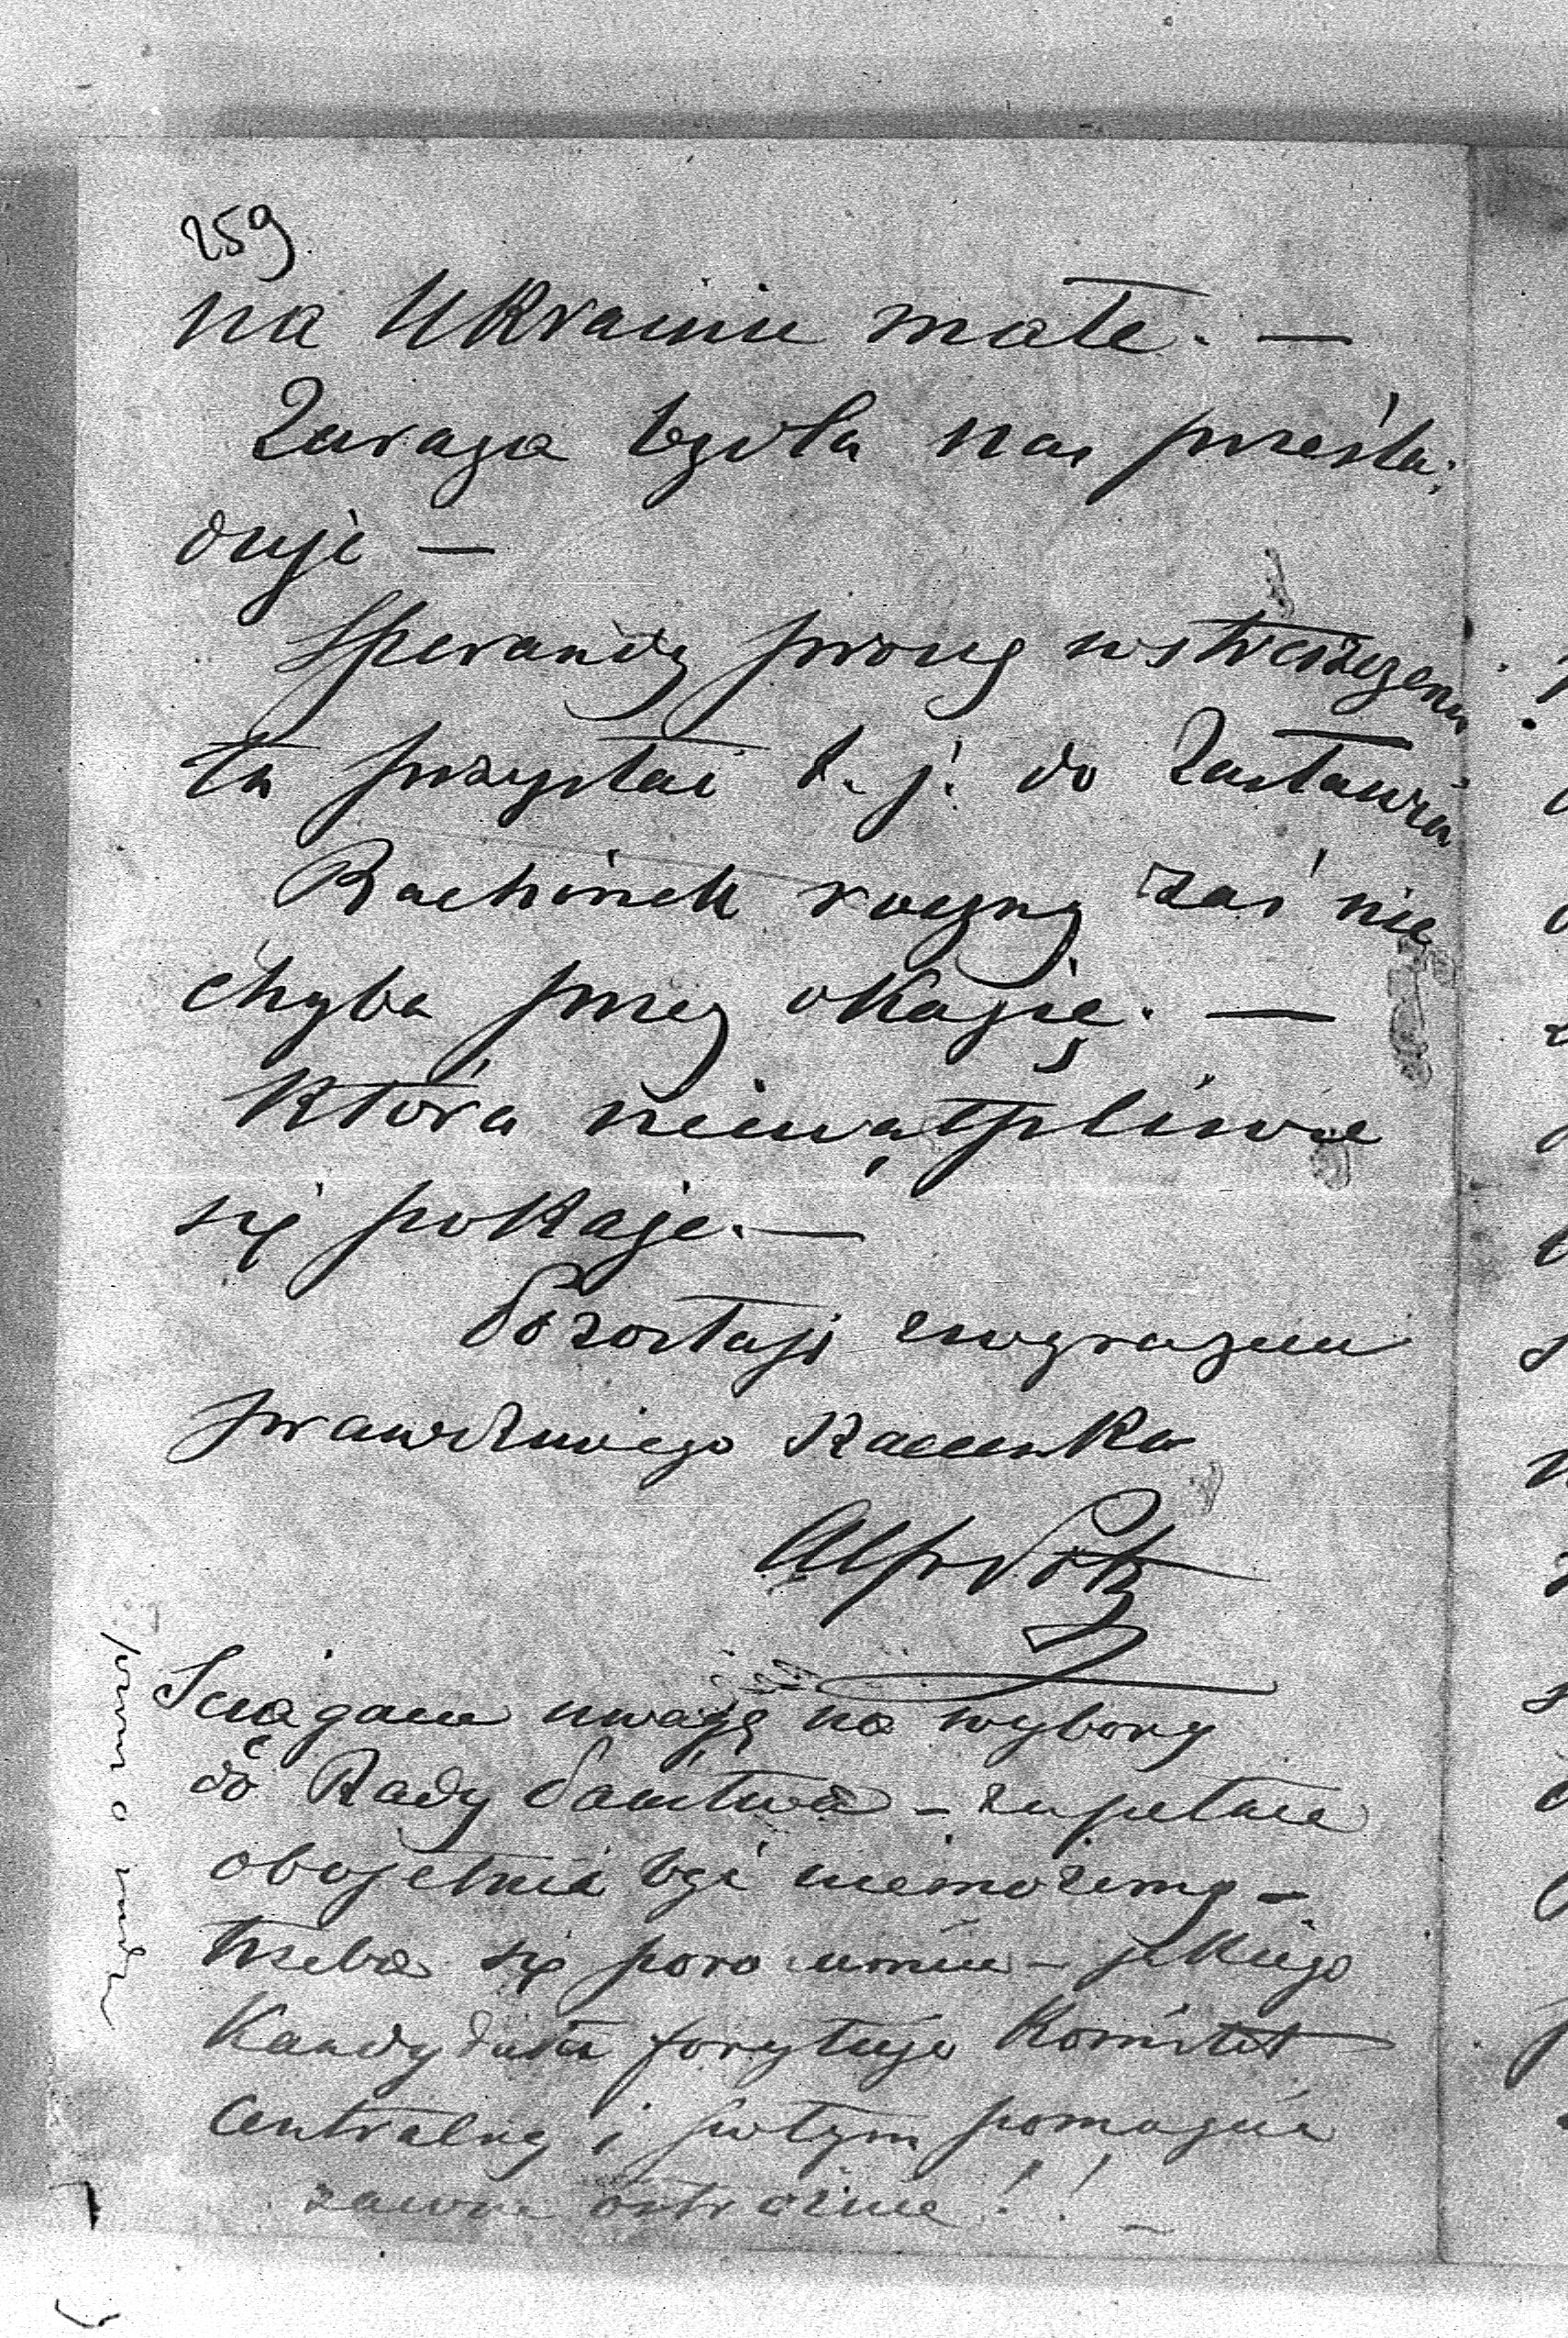 259
na Ukrainie małe. —
Zaraza bydła nas prześla-
duje —
Sperandy proszę wstrzczęzena
tu przysłać t. j. do Zastawia
Rachinek roczny zaś nie
chyba przez okazię. —
która nieiwątpliwie
się pokaże. —
Pozostaję z wyrazem
prawdziwego szacunku
Alfr Potk
Sciągam uwagę na wybory
do Rady Państwa — zupełnie
obojętnie być niemożemy —
trzeba się porozumieć — jakiego
Kandydata forytuje Komitet
Centralny i potym pomagać
zawsze ostrożnie!! —